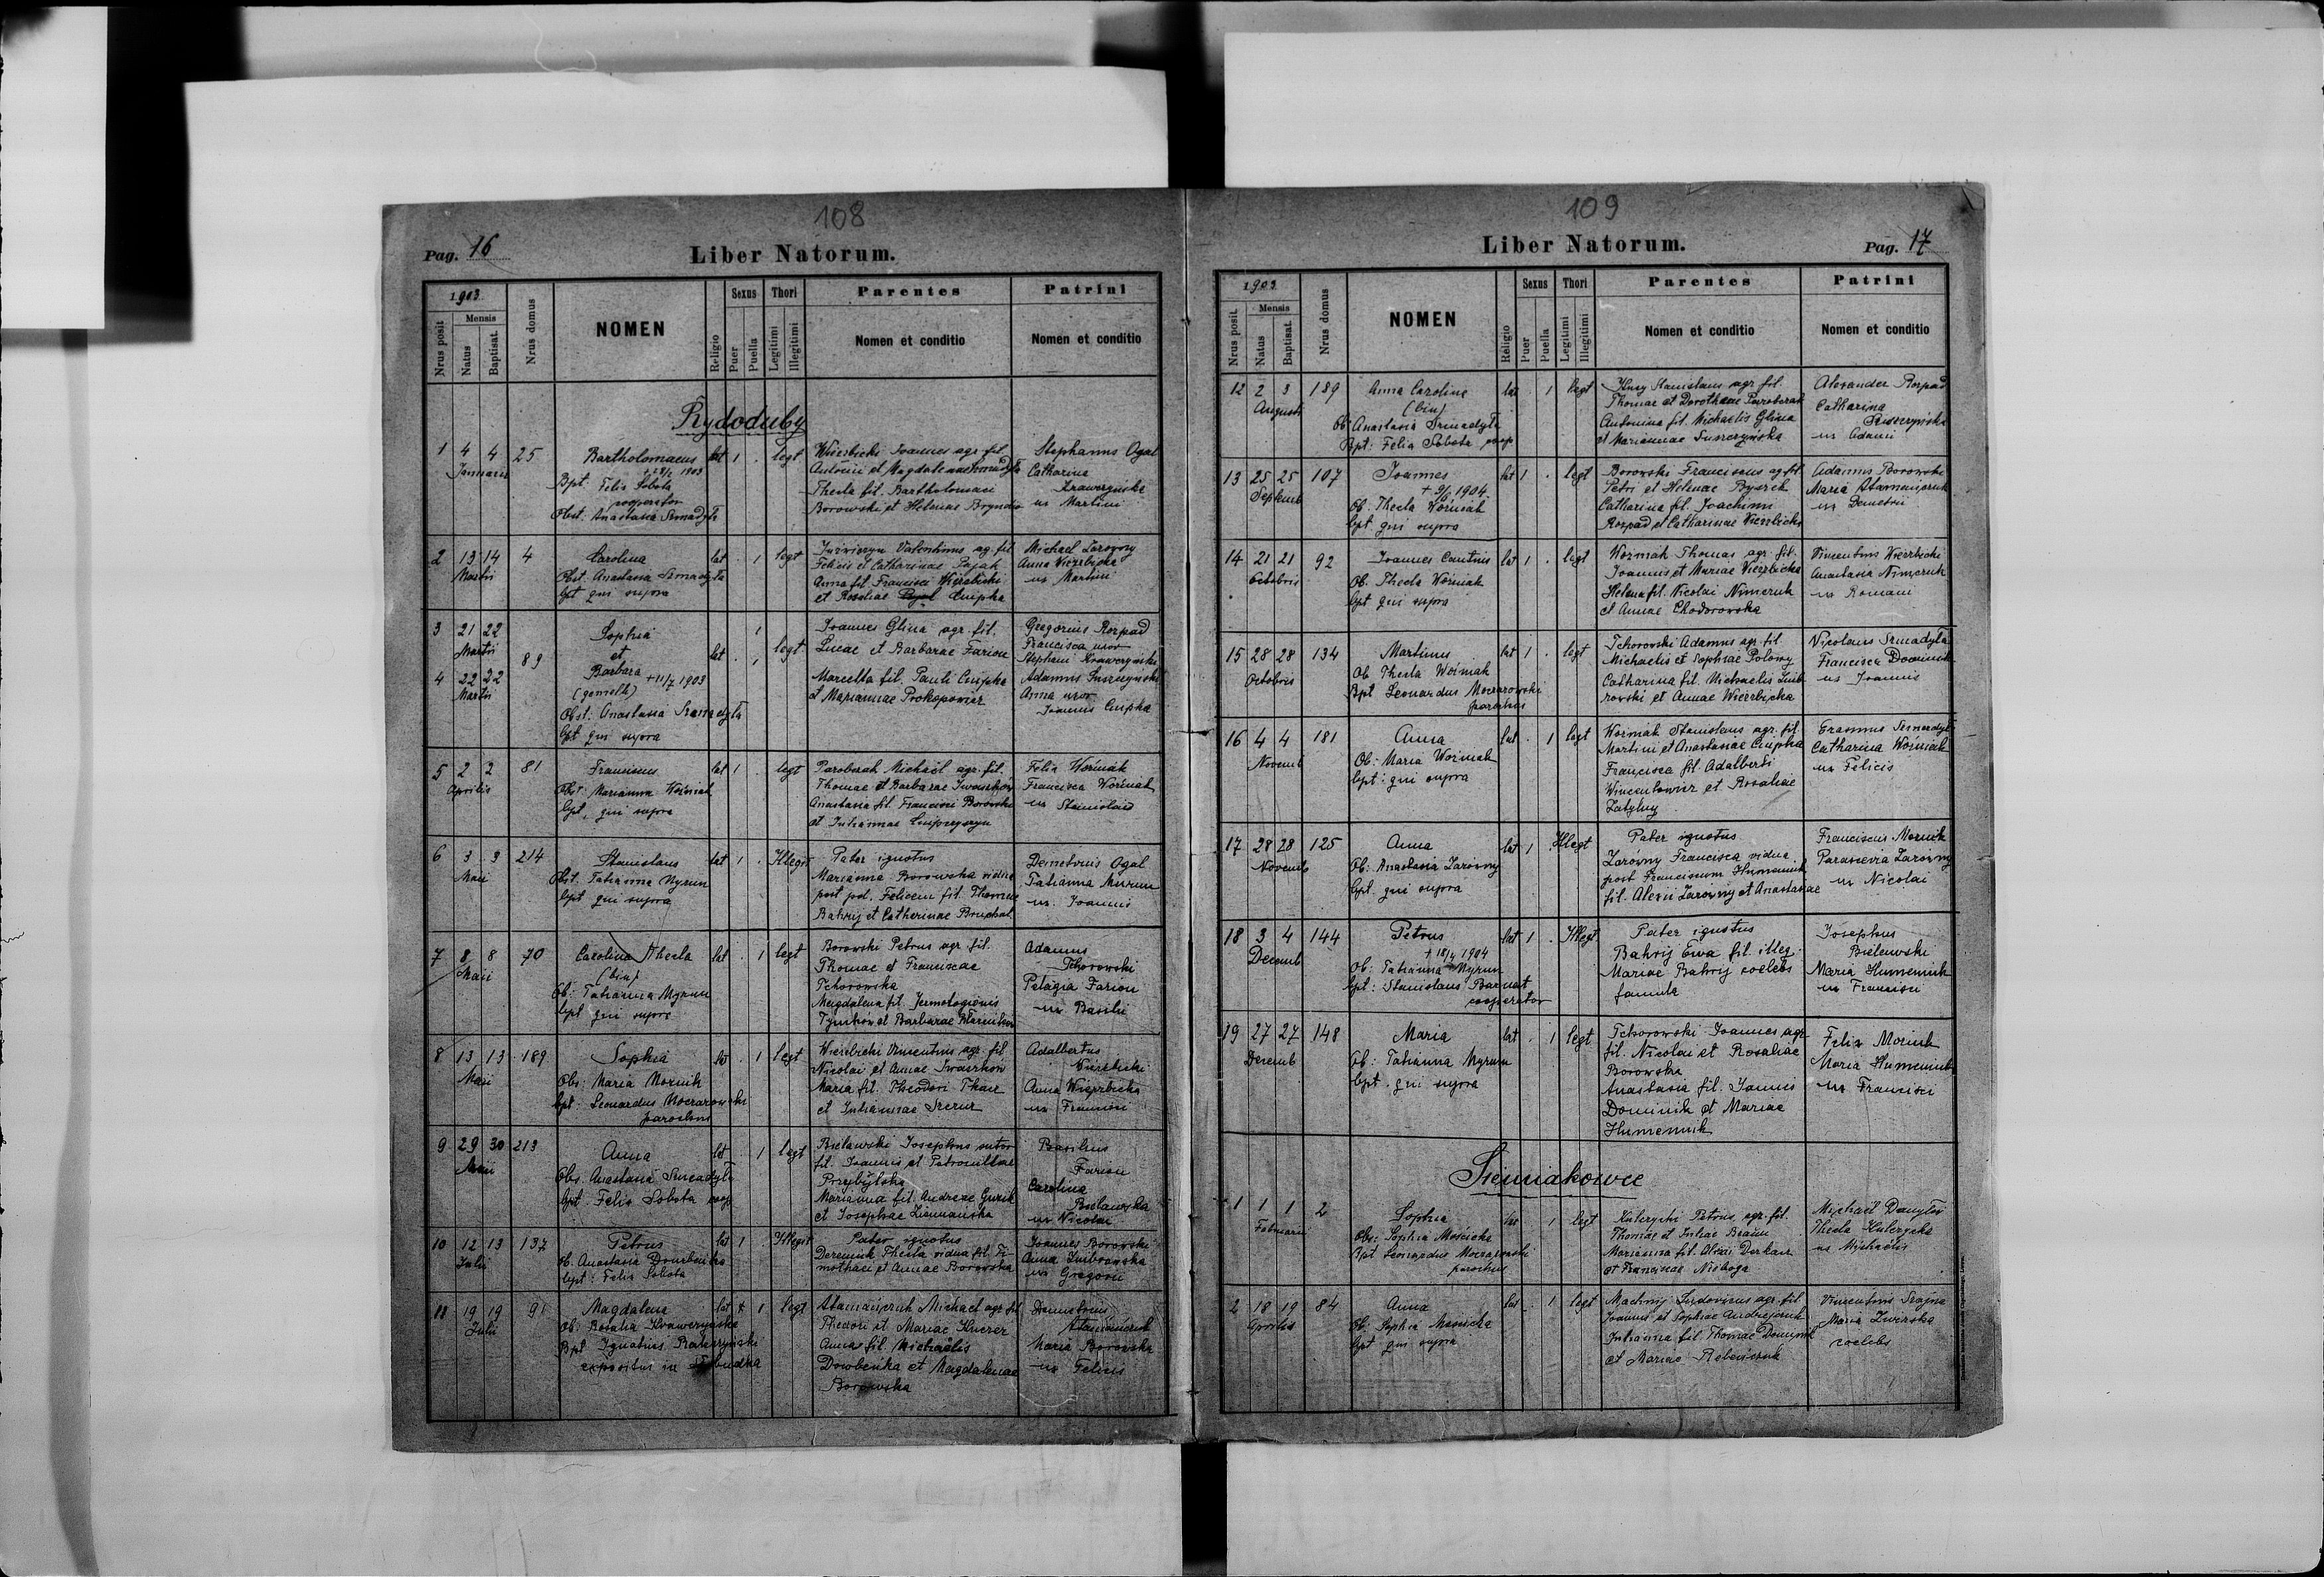 108
Pag. 16
Liber Natorum.
1903
Nrus posit
Mensis
Natus
Baptisat.
Nrus domus
NOMEN
Religio
Sexus
Puer
Puella
Thori
Legitimi
Illegitimi
Parentes
Nomen et conditio
Patrini
Nomen et conditio
Rydoduby
1 4 4 25 Bartholomaeus lat 1 . legt
Januarii
Bpt. Felix Sobota
cooperator
Obst: Anastasia Szmadyła
Wierzbicki Joannes agr. fil.
Antonii et Magdalenae Szmadyła
Thecla fil. Bartholomaei
Borowski et Helenae
Stephanus Ogal
Catharina
Krawczyńska
ux Martini
2 13 14 4 Carolina lat . 1 legt
Martii
Obst. Anastasia Szmadyła
bpt qui supra
Valentinus ag. fil.
Felicis et Catharinae Pająk
Anna fil. Francisci Wierzbicki
et Rosaliae Cuipka
Michael Zarowny
Anna Wierzbicka
ux Martini
3 21 22
Martii
4 22 22
Martii
89
Sophia
et
Barbara + 11/7 1903
(gemelli)
Obst: Anastasia Szmadyła
bpt qui supra
lat . 1 legt
Joannes Glina agr. fil.
Lucae et Barbarae Farion
Marcella fil. Pauli Cuipka
et Mariannae Prokopowicz
Gregorius Rozpad
Francisca uxor
Stephani Krawczyński
Adamus Suszczyński
Anna uxor
Joannis Cuipka
5 2 2 81 Franciscus lat 1 . legt
Aprilis
Obst: Marianna Woźniak
bpt. qui supra
Parobczak Michael agr. fil.
Thomae et Barbarae Iwaszków
Anastasia fil. Francisci Borowski
et Juliannae
Felix Woźniak
Francisca Woźniak
ux Stanislai
6 3 3 214 Stanislaus lat 1 . Illegit
Maii
Obst. Tatianna Myrun
bpt qui supra
Pater ignotus
Marianna Borowska vidua
post pod. Felicem fil. Thomae
Bahrij et Catherinae Bruchal
Demetrius Ogal
Tatianna Murun
ux. Joannis
7 8 8 70 Carolina Thecla lat . 1 legt
Maii
(bin)
Ob: Tatianna Myrun
bpt qui supra
Borowski Petrus agr. fil.
Thomae et Franciscae
Tchorowska
Magdalena fil. Jermologionis
Tymków et Barbarae
Adamus
Tchorowski
Pelagia Farion
ux Basilii
8 13 13 189 Sophia lat . 1 legt
Maii
Obs: Maria Moznik
bpt: Leonardus Moczarowski
parochus
Wierzbicki Vincentius agr. fil
Nicolai et Annae Iwaszków
Maria fil. Theodori Tkacz
et Juliannae Szczur
Adalbertus
Wierzbicki
Anna Wierzbicka
ux Francisci
9 29 30 213 Anna lat . 1 legt
Maii
Obs. Anastasia Szmadyła
bpt Felix Sobota coop
Bielawski Josephus sutor
fil. Joannis et Petronillae
Przybylska
Marianna fil. Andreae Guzik
et Josephae Ziemiańska
Basilius
Farion
Carolina
Bielawska
ux Nicolai
10 12 13 137 Petrus lat 1 . Illegit
Julii
Ob. Anastasia Dowbenka
bpt: Felix Sobota
Pater ignotus
Deremik Thecla vidua fil. Ti-
mothaei et Annae Borowska
Joannes Borowski
Anna Zimbrowska
ux Gregorii
11 19 19 91 Magdalena lat 1 legt
Julii
Ob: Rosalia Krawczyńska
Bpt Ignatius
expositus in
Atamańczuk Michael agr fil
Thedori et Mariae Kuczer
Anna fil. Michaelis
Dowbenka et Magdalenae
Borowska
Demetrius
Atamańczuk
Maria Borowska
ux Felicis
109
Liber Natorum.
Pag. 17
1903
Nrus posit.
Mensis
Natus
Baptisat.
Nrus domus
NOMEN
Religio
Sexus
Puer
Puella
Thori
Legitimi
Illegitimi
Parentes
Nomen et conditio
Patrini
Nomen et conditio
12 2 3 189 Anna Carolina lat . 1 legt
Augusti
(bin)
Ob Anastasia Szmadyła
Bpt: Felix Sobota coop
Stanislaus agr fil.
Thomae et Dorotheae Parobczak
Antonina fil. Michaelis Glina
et Mariannae Suszczyńska
Alexander Rozpad
Catharina
Suszczyńska
ux Adami
13 25 25 107 Joannes lat 1 . legt
Septemb
+ 9/6 1904
Ob. Thecla Woźniak
bpt qui supra
Borowski Franciscus ag fil
Petri et Helenae Byszek
Catharina fil. Joachimi
Rozpad et Catharinae Wierzbicka
Adamus Borowski
Maria Atamańczuk
ux Demetrii
14 21 21 92 Joannes Cantius lat 1 . legt
Octobris
Ob. Thecla Woźniak
bpt qui supra
Woźniak Thomas agr. fil.
Joannis et Mariae Wierzbicka
Helena fil. Nicolai Nimczuk
et Annae Chodorowska
Vincentius Wierzbicki
Anastasia Nimczuk
ux Romani
15 28 28 134 Martinus lat 1 . legt
Octobris
Ob Thecla Woźniak
Bpt Leonardus Moczarowski
parochus
Tchorowski Adamus agr. fil.
Michaelis et Sophiae Polowy
Catharina fil. Michaelis Zimb-
rowski et Annae Wierzbicka
Nicolaus Szmadyła
Francisca Dominik
ux Joannis
16 4 4 181 Anna lat . 1 legt
Novemb
Ob: Maria Woźniak
bpt: qui supra
Woźniak Stanislaus agr. fil
Martini et Anastasiae Cuipka
Francisca fil. Adalberti
Wincentowicz et Rosaliae
Zatylny
Erasmus Szmadyła
Catharina Woźniak
ux Felicis
17 28 28 125 Anna lat 1 Illegt
Novemb
Ob: Anastasia Zarowny
bpt. qui supra
Pater ignotus
Zarówny Francisca vidua
post Franciscum Humeniuk
fil. Alexii Zarówny et Anastasiae
Franciscus Moznik
Parascevia Zarowny
ux Nicolai
18 3 4 144 Petrus lat 1 . Illegt
Decemb
+ 18/4 1904
Ob: Tatianna Myrun
bpt: Stanislaus Barnat
cooperator
Pater ignotus
Bahrij Ewa fil. illeg.
Mariae Bahrij coelebs
famula
Josephus
Bielawski
Maria Humeniuk
ux Francisci
19 27 27 148 Maria lat . 1 legt
Decemb
Ob: Tatianna Myrun
bpt. qui supra
Tchorowski Joannes agr
fil. Nicolai et Rosaliae
Borowska
Anastasia fil. Joannis
Dominik et Mariae
Humeniuk
Felix Moznik
Maria Humeniuk
ux Francisci
Sieniakowce
1 1 1 2 Sophia lat 1 legt
Februarii
Obs: Sophia Mościcka
Bpt Leonardus Moczarowski
parochus
Kulczycki Petrus agr. fil.
Thomae et Juliae
Marianna fil. Alexii Derkacz
et Franciscae Nieboga
Michael Danyłów
Thecla Kulczycka
ux Michaelis
2 18 19 84 Anna lat . 1 legt
Aprilis
Ob: Sophia Mosicka
bpt qui supra
Machnij Ludovicus agr. fil.
Joannis et Sophiae Andrejczuk
Julianna fil Thomae Dominik
et Mariae
Vincentius Szajna
Maria Zwierska
coelebs